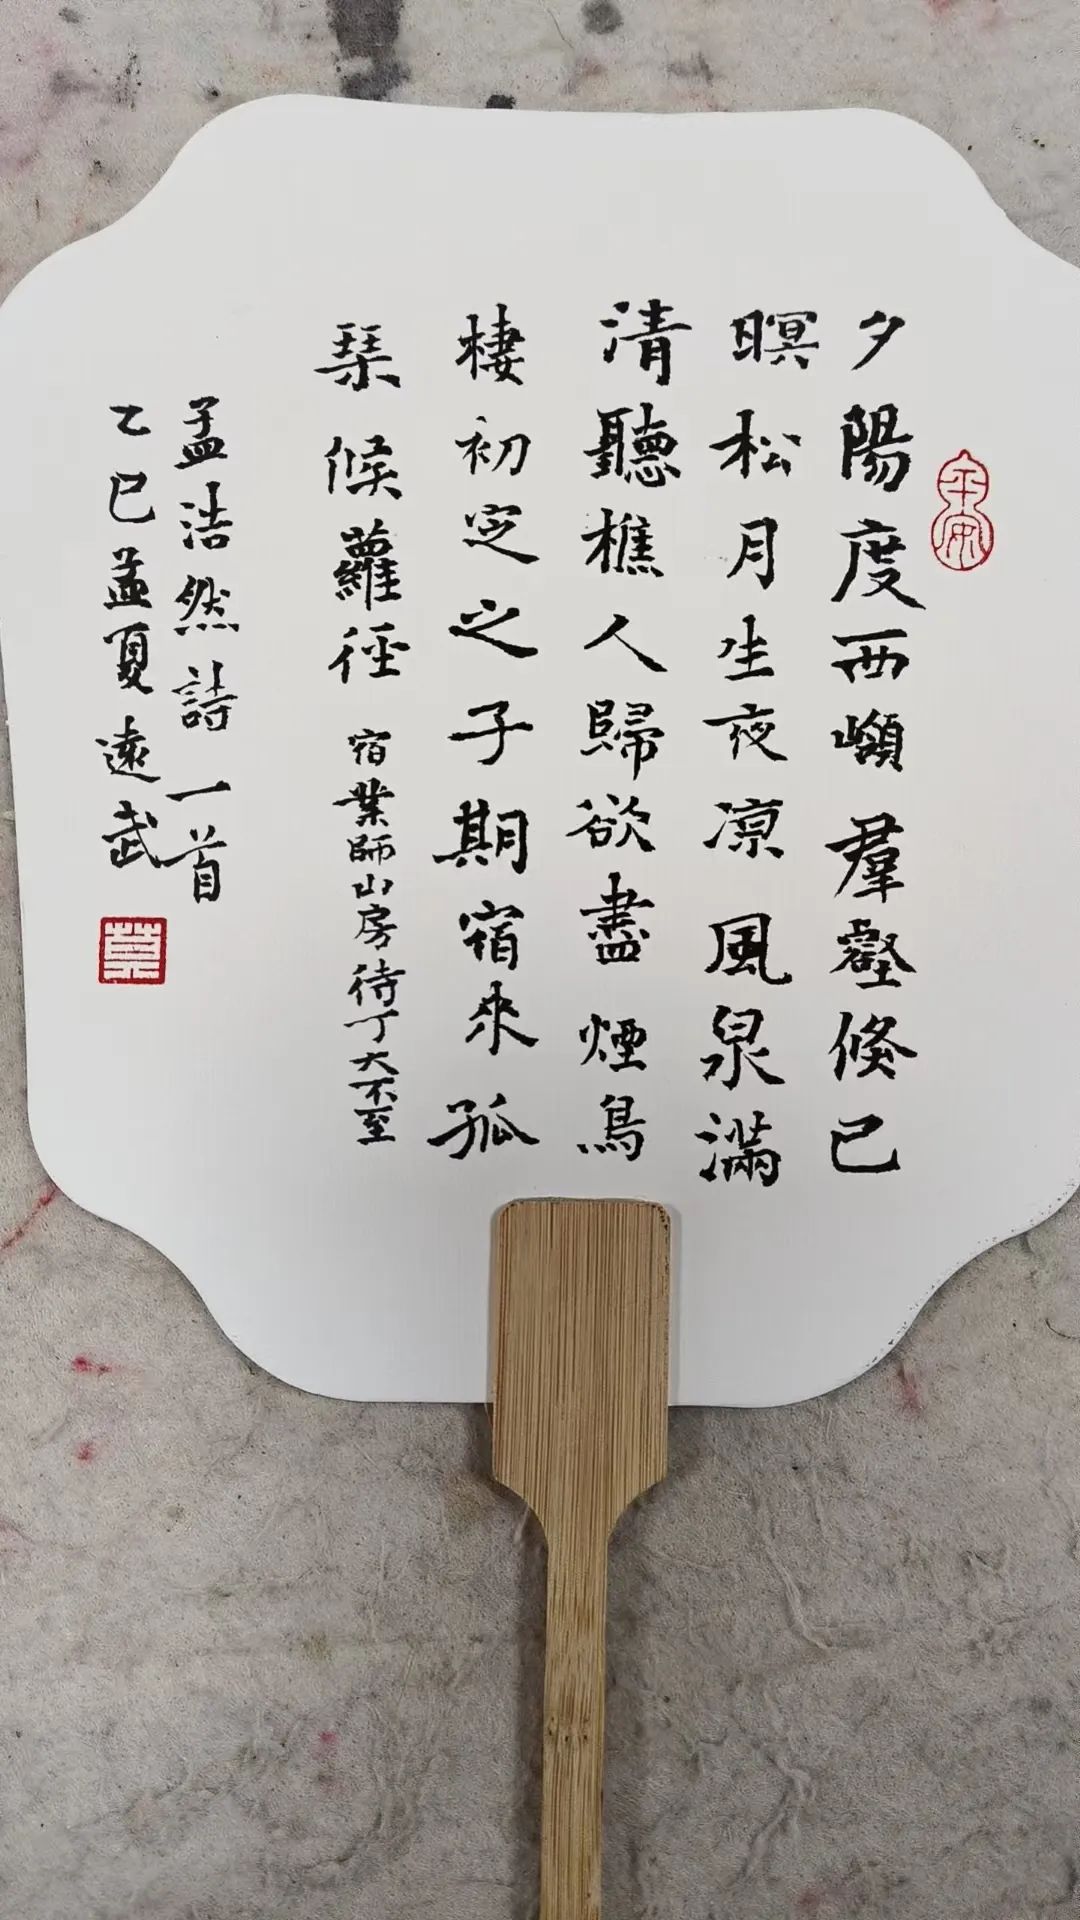 平安
夕陽度西嶺羣壑倏已
暝松月生夜凉風泉滿
清聽樵人歸欲盡煙鳥
棲初定之子期宿來孤
琴候蘿徑
宿業師山房待丁大不至
孟浩然詩一首
乙巳孟夏遠武